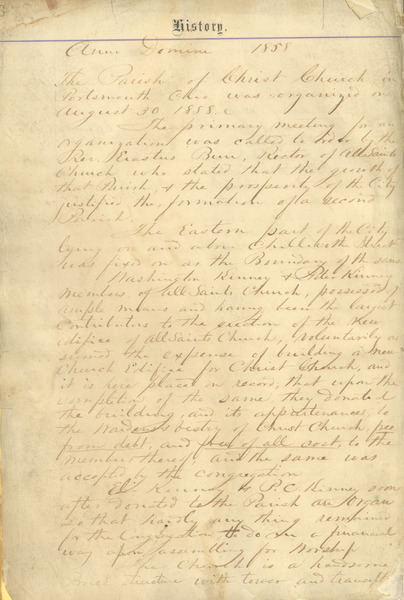 History.
Anno Domini 1858
The Parish of Christ Church in
Portsmouth Ohio was organized on
August 30 1858.
The primary meeting for an
organization was called to order by the
Rev. Erastus Burr, Rector of All Saints
Church who stated that the growth of
that Parish, & the prosperity of the City
justified the formation of a second
Parish.
The Eastern part of the City
lying on and above Chillicothe Street
was fixed on as the Boundary of the same
Washington Kinney & Peter Kinney
members of All Saints Church, possessed of
ample means and having been the largest
contributors to the erection of the New
edifice of All Saints Church, voluntarily as
sumed the expense of building a new
Church Edifice for Christ Church, and
it is here placed on record, that upon the
completion of the same they donated
the building, and its appurtenances, to
the Wardens & Vestry of Christ Church, free
from debt, and free of all cost, to the
members thereof, and the same was
accepted by the congregation
Kinney & P. C. Kinney soon
after donated to the Parish an Organ
so that hardly any thing remained
for the Congregation to do in a financial
way upon assembling for Worship
The Church is a handsome
structure with tower and transepts